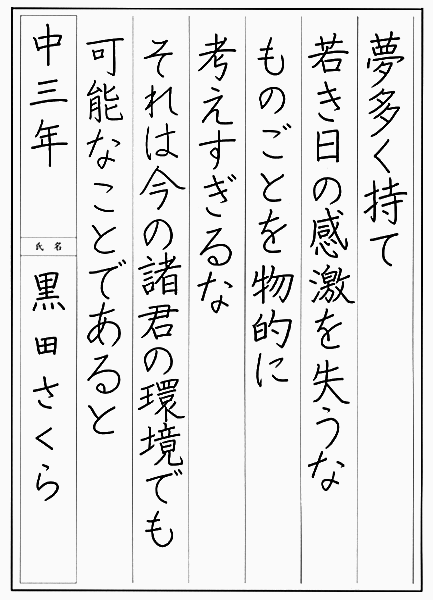 夢多く持て
若き日の感激を失うな
ものごとを物的に
考えすぎるな
それは今の諸君の環境でも
可能なことであると
中三年
氏名
黒田さくら